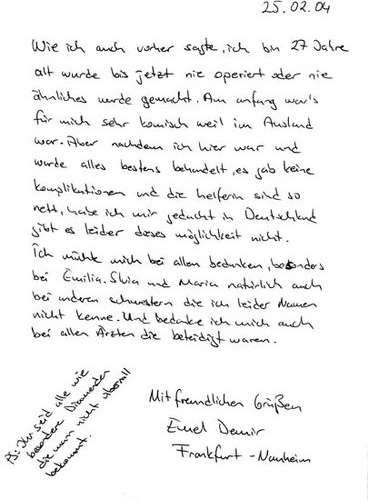 25.02.04
Wie ich auch vorher sagte, ich bin 27 Jahre
alt wurde bis jetzt nie operiert oder nie
ähnliches wurde gemacht. Am anfang war's
für mich sehr komisch weil im Ausland
war. Aber nachdem ich hier war und
wurde alles bestens behandelt, es gab keine
komplikationen und die helferin sind so
nett, habe ich mir gedacht in Deutschland
gibt es leider dieses möglichkeit nicht.
Ich möhte mich bei allen bedanken, besonders
bei Emilia. Silvia und Maria natürlich auch
bei anderen schwestern die ich leider Namen
nicht kenne. Und bedanke ich mich auch
bei allen Ärzten die beteidigt waren.
Mit freundlichen Grüßen
Emel Demir
Frankfurt - Nauheim
Ps: Ihr seid alle wie
besondere Diamanten
die man nicht überall
bekommt.